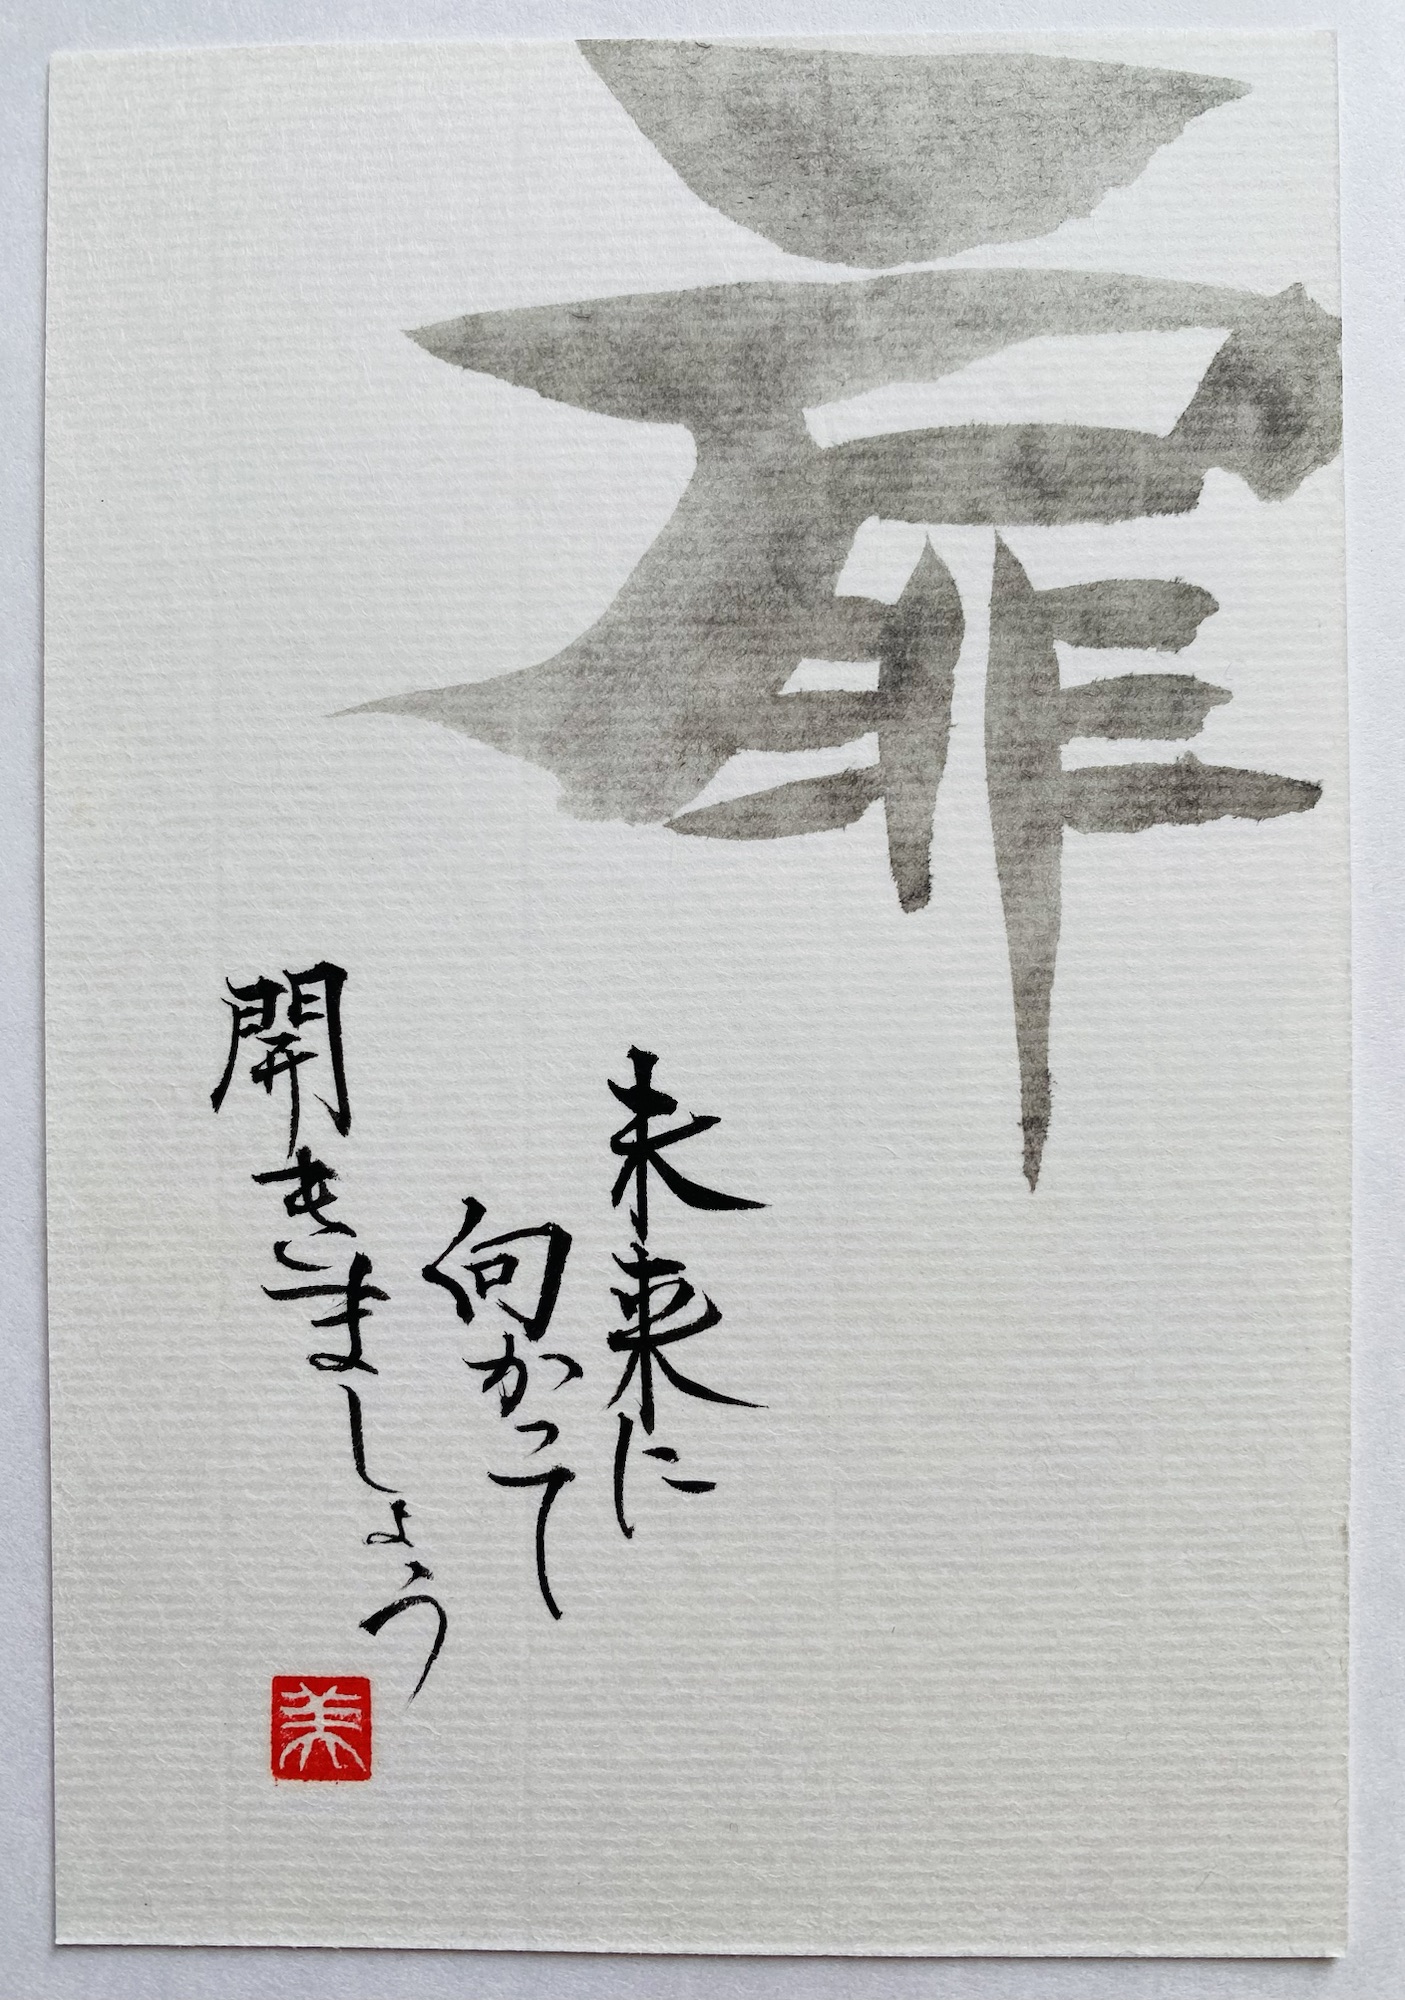 扉
未来に
向かって
開きましょう
美